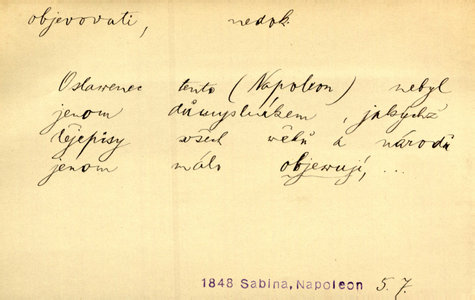 objevovati, nedok.
Oslawenec tento (Napoleon) nebyl
jenom důmyslníkem, jakýchž
dějepisy všech wěků a národů
jenom málo objewují, ...
1848 Sabina, Napoleon 5. 7.